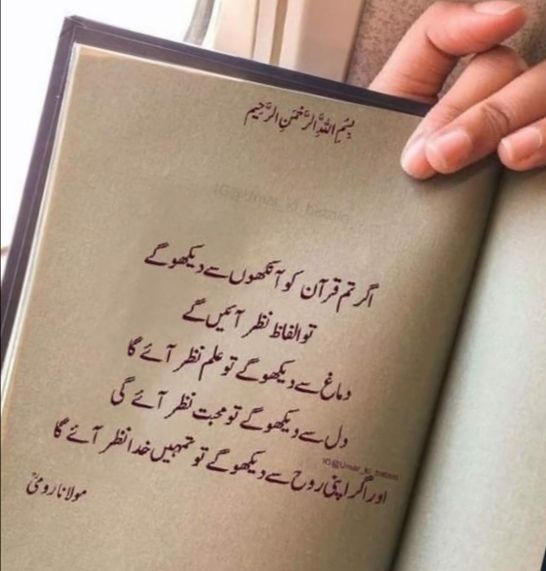 بِسْمِ اللهِ الرَّحْمٰنِ الرَّحِيْمِ
IG@Umar_ki_bataein
اگر تم قرآن کو آنکھوں سے دیکھو گے
تو الفاظ نظر آئیں گے
دماغ سے دیکھو گے تو علم نظر آئے گا
دل سے دیکھو گے تو محبت نظر آئے گی
IG@Umar_ki_bataein
اور اگر اپنی روح سے دیکھو گے تو تمہیں خدا نظر آئے گا
مولانا رومیؒ